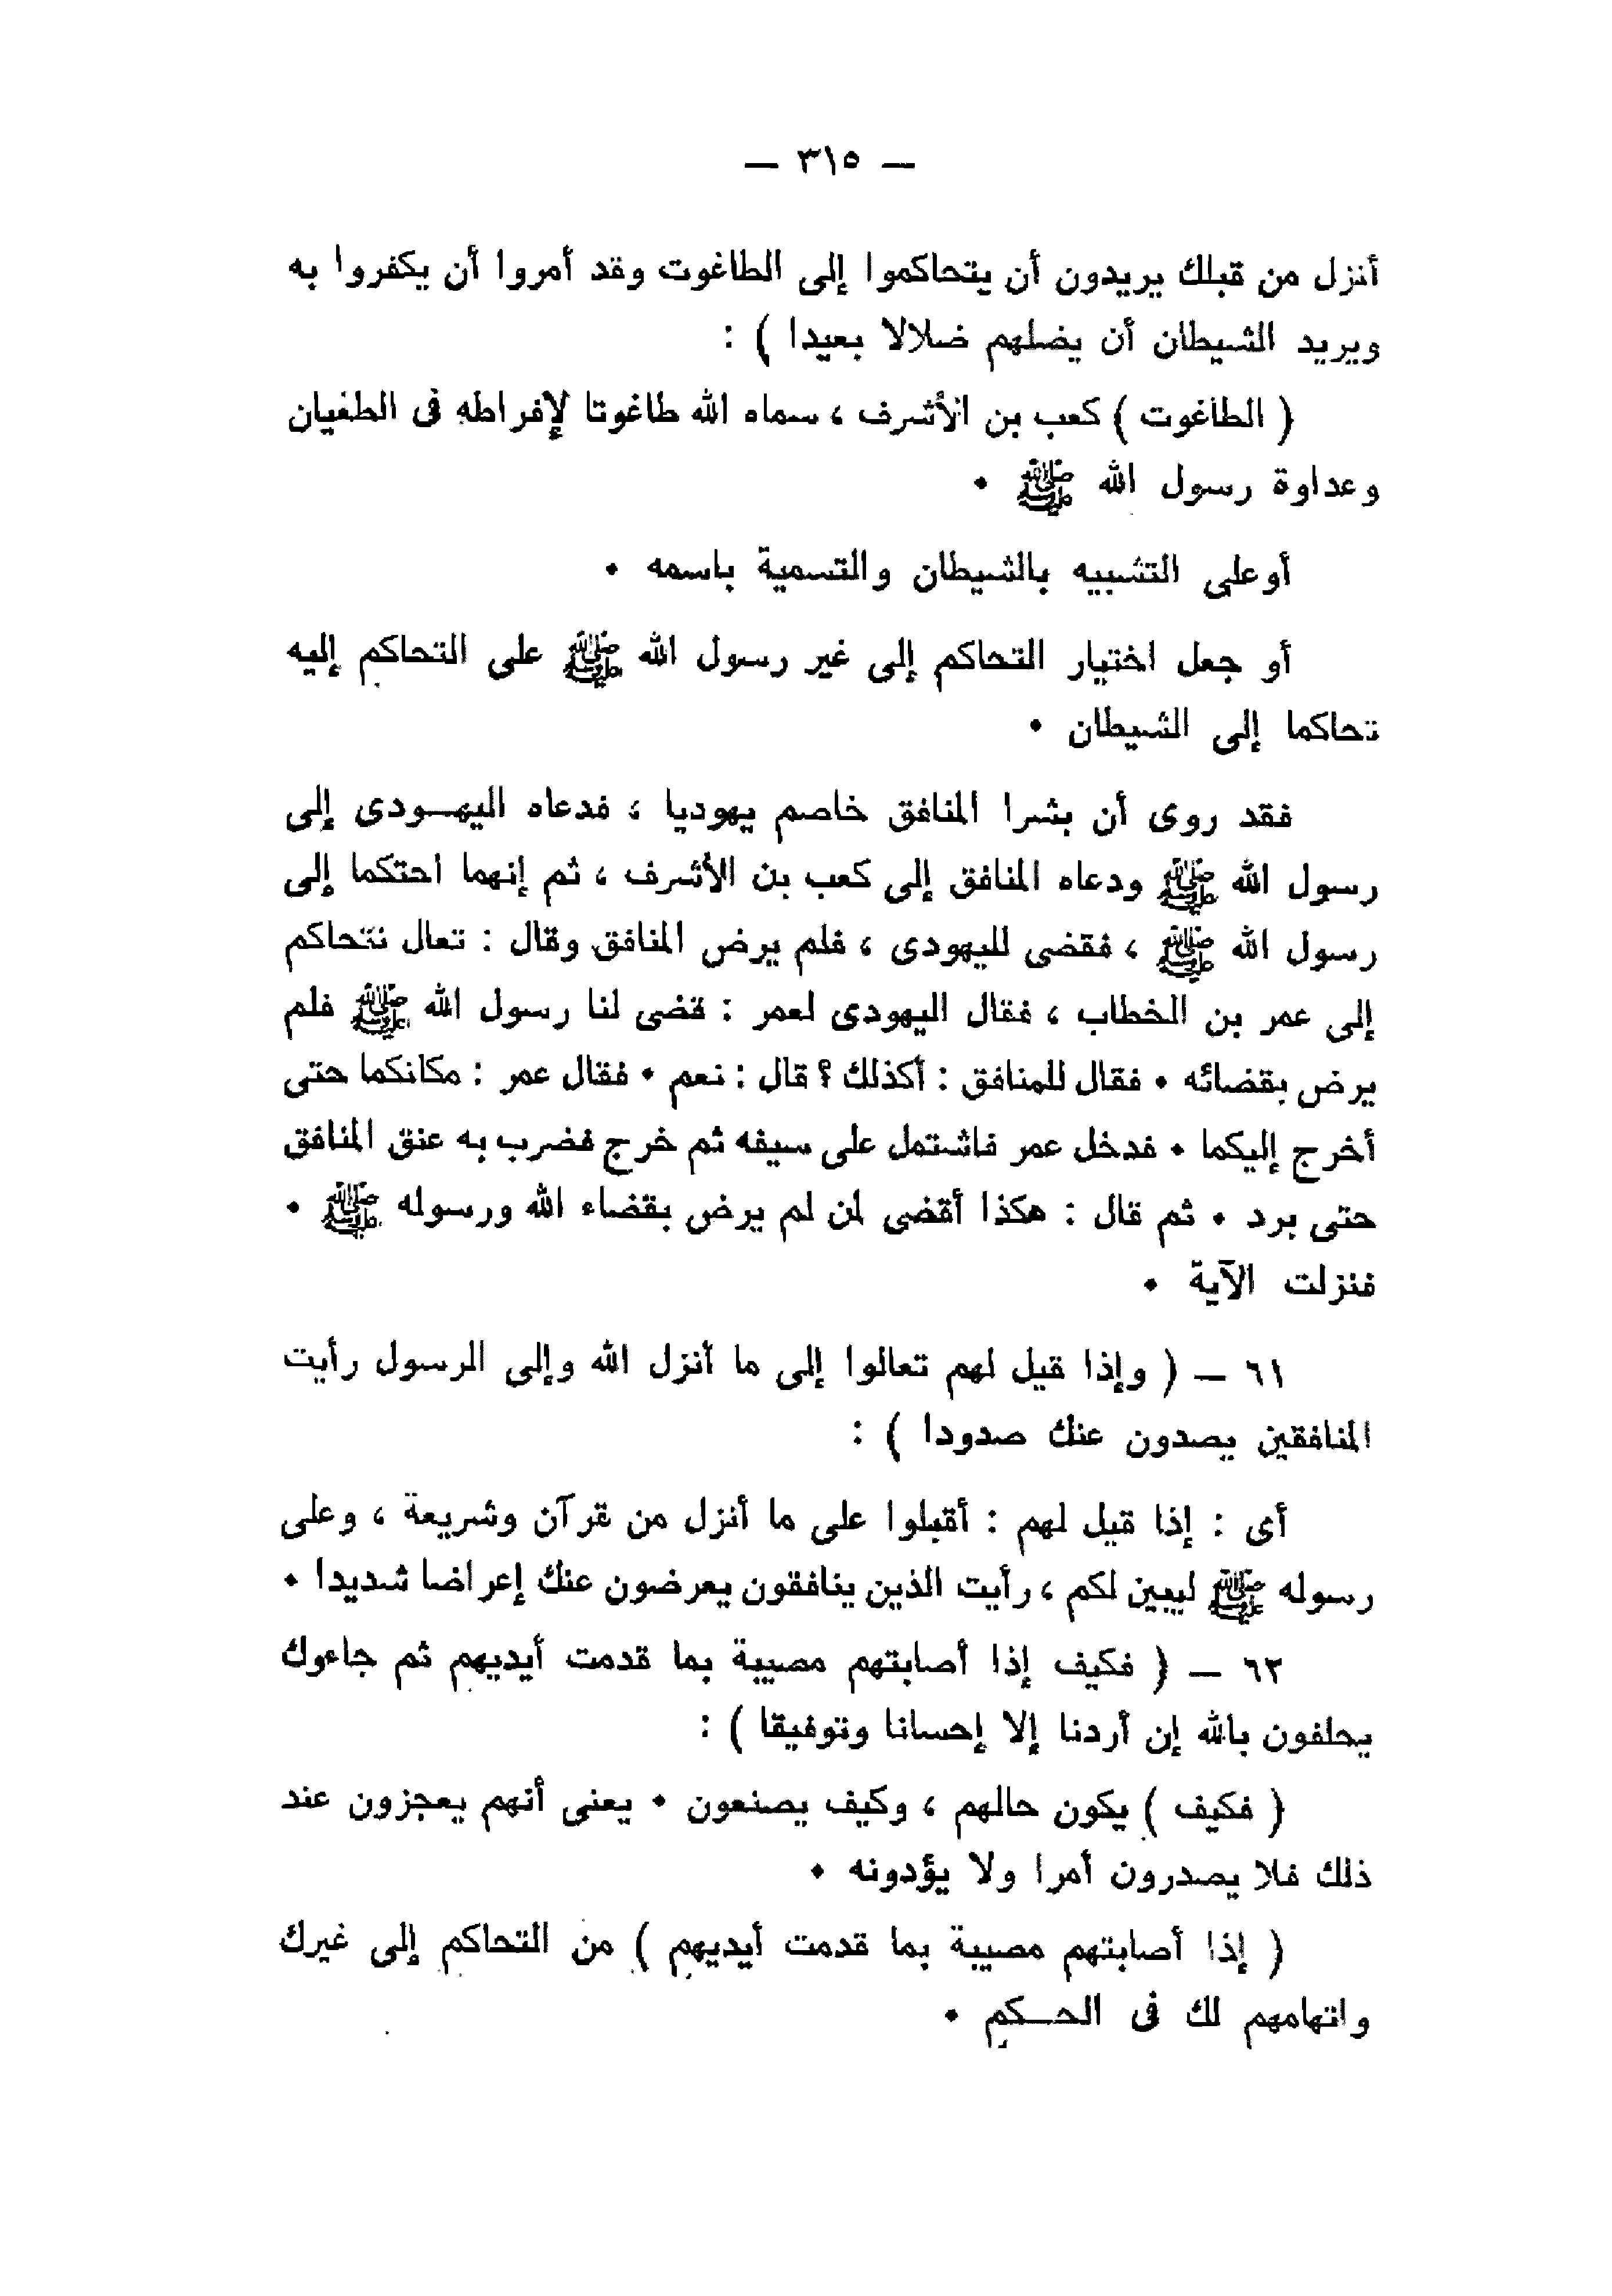 — ٣١٥ —
أنزل من قبلك يريدون أن يتحاكموا إلى الطاغوت وقد أمروا أن يكفروا به
ويريد الشيطان أن يضلهم ضلالا بعيدا ) :
( الطاغوت ) كعب بن الأشرف ، سماه الله طاغوتا لإفراطه فى الطغيان
وعداوة رسول الله ﷺ •
أوعلى التشبيه بالشيطان والتسمية باسمه •
أو جعل اختيار التحاكم إلى غير رسول الله ﷺ على التحاكم إليه
تحاكما إلى الشيطان •
فقد روى أن بشرا المنافق خاصم يهوديا ، فدعاه اليهـودى إلى
رسول الله ﷺ ودعاه المنافق إلى كعب بن الأشرف ، ثم إنهما احتكما إلى
رسول الله ﷺ ، فقضى لليهودى ، فلم يرض المنافق وقال : تعال نتحاكم
إلى عمر بن الخطاب ، فقال اليهودى لعمر : قضى لنا رسول الله ﷺ فلم
يرض بقضائه • فقال للمنافق : أكذلك ؟ قال : نعم • فقال عمر : مكانكما حتى
أخرج إليكما • فدخل عمر فاشتمل على سيفه ثم خرج فضرب به عنق المنافق
حتى برد • ثم قال : هكذا أقضى لمن لم يرض بقضاء الله ورسوله ﷺ •
فنزلت الآية •
٦١ — ( وإذا قيل لهم تعالوا إلى ما أنزل الله وإلى الرسول رأيت
المنافقين يصدون عنك صدودا ) :
أى : إذا قيل لهم : أقبلوا على ما أنزل من قرآن وشريعة ، وعلى
رسوله ﷺ ليبين لكم ، رأيت الذين ينافقون يعرضون عنك إعراضا شديدا •
٦٢ — ( فكيف إذا أصابتهم مصيبة بما قدمت أيديهم ثم جاءوك
يحلفون بالله إن أردنا إلا إحسانا وتوفيقا ) :
( فكيف ) يكون حالهم ، وكيف يصنعون • يعنى أنهم يعجزون عند
ذلك فلا يصدرون أمرا ولا يؤدونه •
( إذا أصابتهم مصيبة بما قدمت أيديهم ) من التحاكم إلى غيرك
واتهامهم لك فى الحـكم •